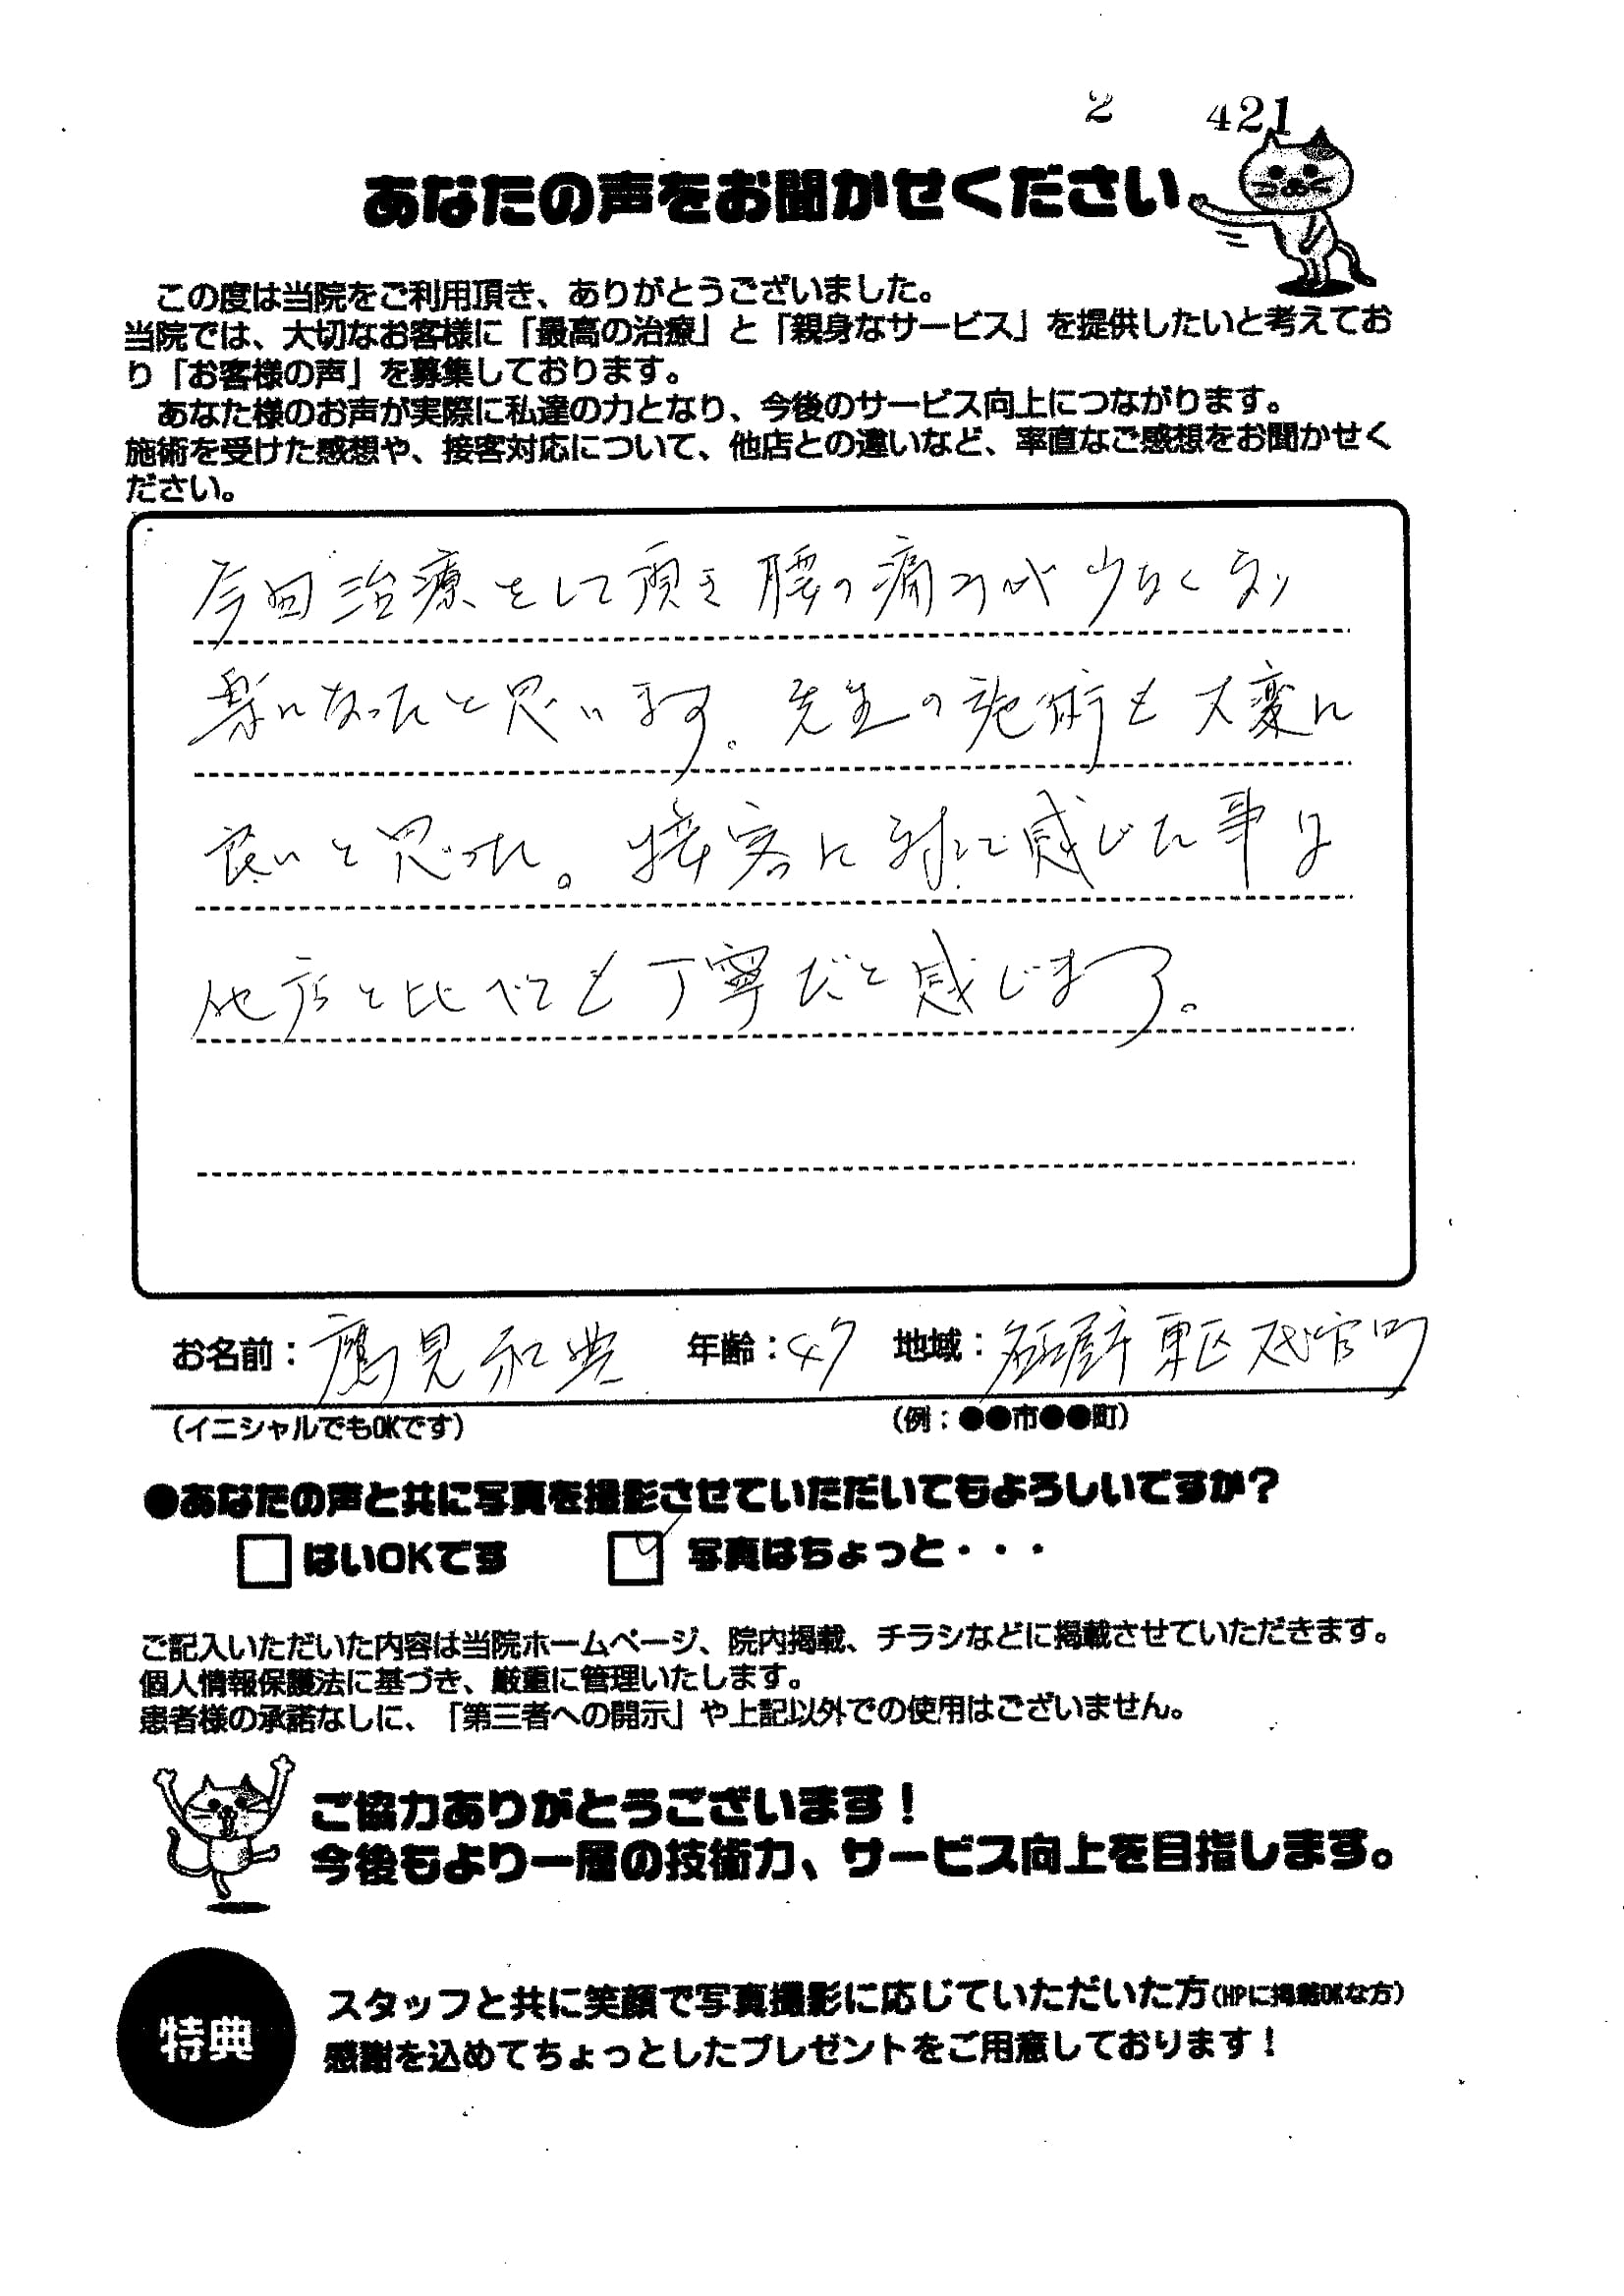 2 421
あなたの声をお聞かせください
この度は当院をご利用頂き、ありがとうございました。
当院では、大切なお客様に「最高の治療」と「親身なサービス」を提供したいと考えてお
り「お客様の声」を募集しております。
あなた様のお声が実際に私達の力となり、今後のサービス向上につながります。
施術を受けた感想や、接客対応について、他店との違いなど、率直なご感想をお聞かせく
ださい。
今回治療をして頂き腰の痛みが少なくなり
楽になったと思います。先生の施術も大変に
良いと思った。接客に対して感じた事は
他店と比べても丁寧だと感じます。
お名前：鷹見和典 年齢：47 地域：名古屋市東区代官町
（イニシャルでもOKです） （例：●●市●●町）
●あなたの声と共に写真を撮影させていただいてもよろしいですか？
はいOKです 写真はちょっと・・・
ご記入いただいた内容は当院ホームページ、院内掲載、チラシなどに掲載させていただきます。
個人情報保護法に基づき、厳重に管理いたします。
患者様の承諾なしに、「第三者への開示」や上記以外での使用はございません。
ご協力ありがとうございます！
今後もより一層の技術力、サービス向上を目指します。
特典
スタッフと共に笑顔で写真撮影に応じていただいた方（HPに掲載OKな方）
感謝を込めてちょっとしたプレゼントをご用意しております！